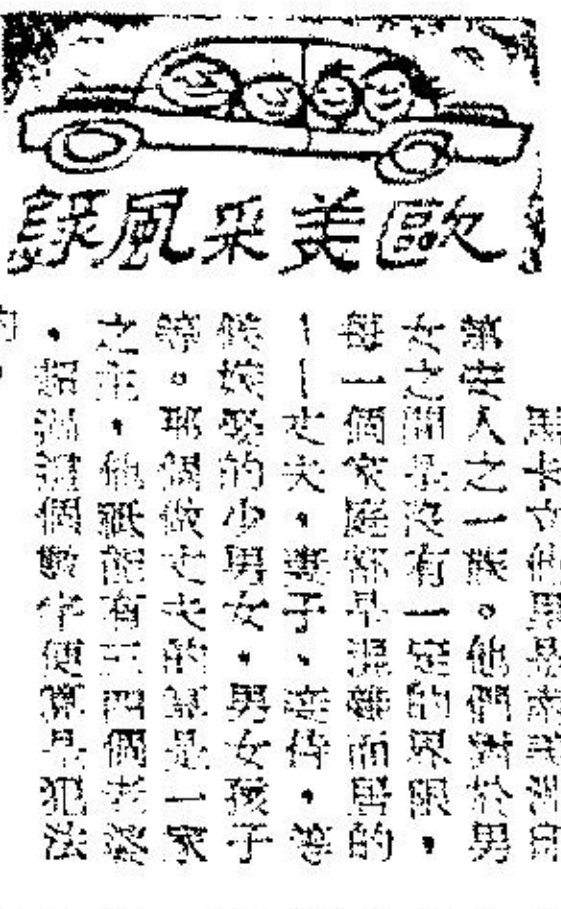 歐美采風錄
人之一族。他們對於男
女之間是沒有一定的界限，
每一個家庭都是混雜而居的
——丈夫，妻子，侍，等
候嫁娶的少男女，男女孩子
等。那個做丈夫的算是一家
之主，他祇能有三四個老婆
，超過這個數字便算是犯法
的。